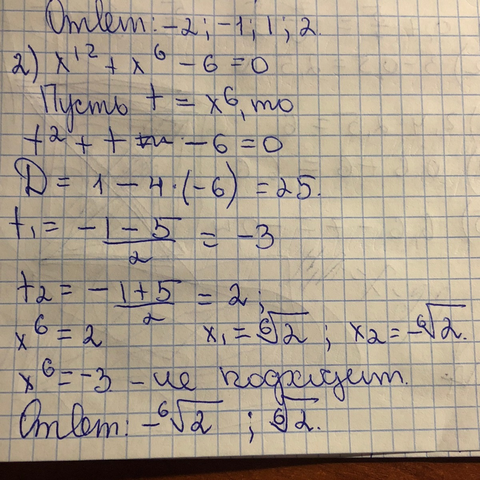 Ответ: -2; -1; 1; 2.
2) x¹² + x⁶ - 6 = 0
Пусть t = x⁶, то
t² + t - 6 = 0
D = 1 - 4·(-6) = 25.
t₁ = (-1 - 5)/2 = -3
t₂ = (-1 + 5)/2 = 2;
x⁶ = 2 x₁ = ⁶√2; x₂ = -⁶√2.
x⁶ = -3 - не подходит.
Ответ: -⁶√2; ⁶√2.